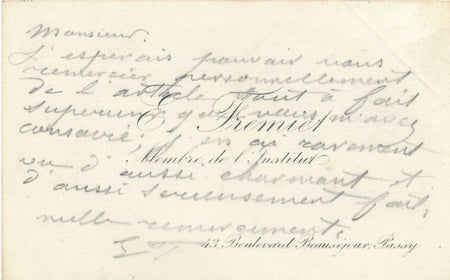 Monsieur.
J'esperais pouvoir vous
remercier personnellement
de l'article tout à fait
superieur que vous m'avez
consacré, j'en ai rarement
vu d'aussi charmant et
d'aussi serieusement fait,
mille remerciments.
E. Fremiet
Membre de l'Institut
43, Boulevard Beauséjour, Passy